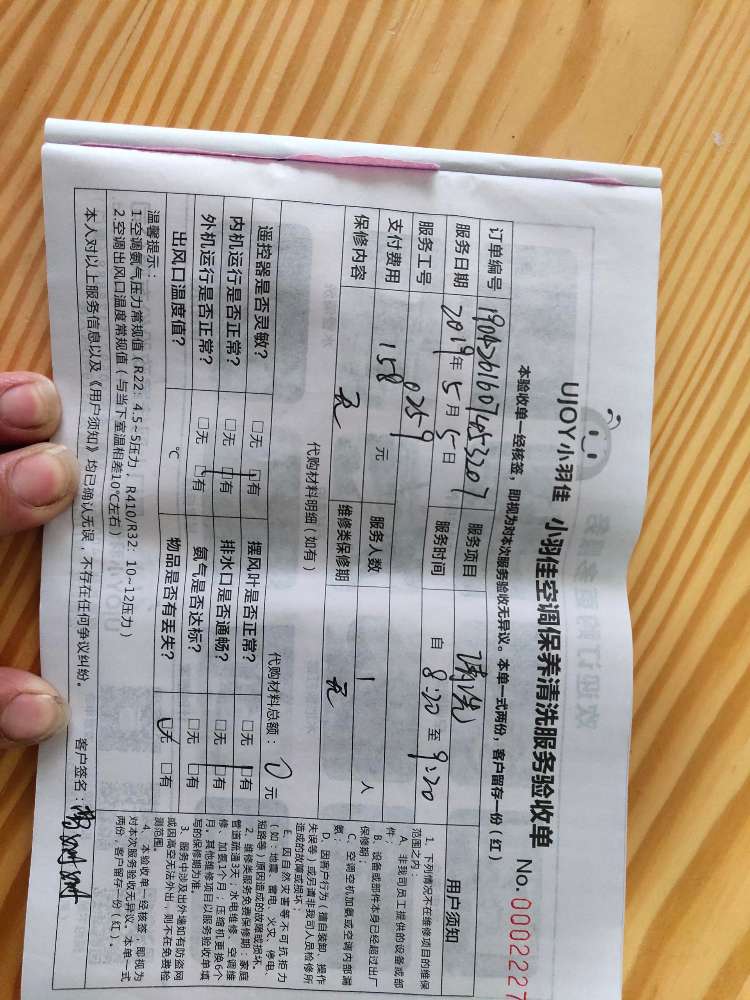 UJOY小羽佳 小羽佳空调保养清洗服务验收单 No.0002227
本验收单一经核签，即视为对本次服务验收无异议。本单一式两份，客户留存一份（红）
订单编号 服务项目 清洗
服务日期 2019年5月5日 服务时间 自 8:20 至 9:20
服务工号 0259
支付费用 158 元 服务人数 1 人
保修内容 无 维修类保修期 无
代购材料明细（如有） 代购材料总额：0元
遥控器是否灵敏？ □无 □有 摆风叶是否正常？ □无 □有
内机运行是否正常？ □无 □有 排水口是否通畅？ □无 □有
外机运行是否正常？ □无 □有 氨气是否达标？ □无 □有
出风口温度值？ ℃ 物品是否有丢失？ □无 □有
温馨提示：
1.空调氨气压力常规值（R22：4.5~5压力，R410/R32：10~12压力）
2.空调出风口温度常规值（与当下室温相差10℃左右）
本人对以上服务信息以及《用户须知》均已确认无误，不存在任何争议纠纷。 客户签名：
用户须知
1、下列情况不在维修项目的维保
范围之内：
A、非我司员工提供的设备或部
件；
B、设备或部件本身已经超过出厂
保修期；
C、空调旁机加氨或空调内部漏
氨；
D、因客户行为（擅自装卸、操作
失误等）或另请非我司人员检修所
造成的故障或损坏；
E、因自然灾害等不可抗拒力
（如：地震、雷电、火灾、停电、
短路等）原因造成的故障或损坏。
2、维修类服务免费保修期：家庭
管道疏通3天；水电维修、空调维
修、加氨1个月；压缩机更换6个
月；其他维修项目以服务验收单填
写的保修期为准。
3、服务中涉及出外墙如有防盗网
或因高空无法外出，则不在免费检
测范围。
4、本验收单一经核签，即视为
对本次服务验收无异议。本单一式
两份，客户留存一份（红）。